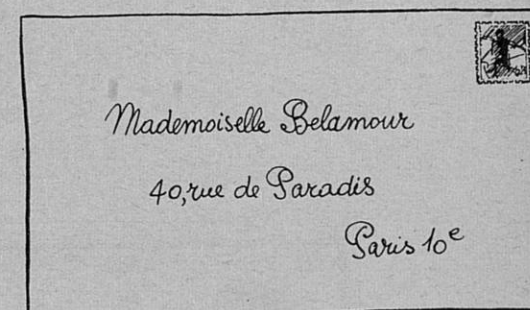 Mademoiselle Belamour
40, rue de Paradis
Paris 10e